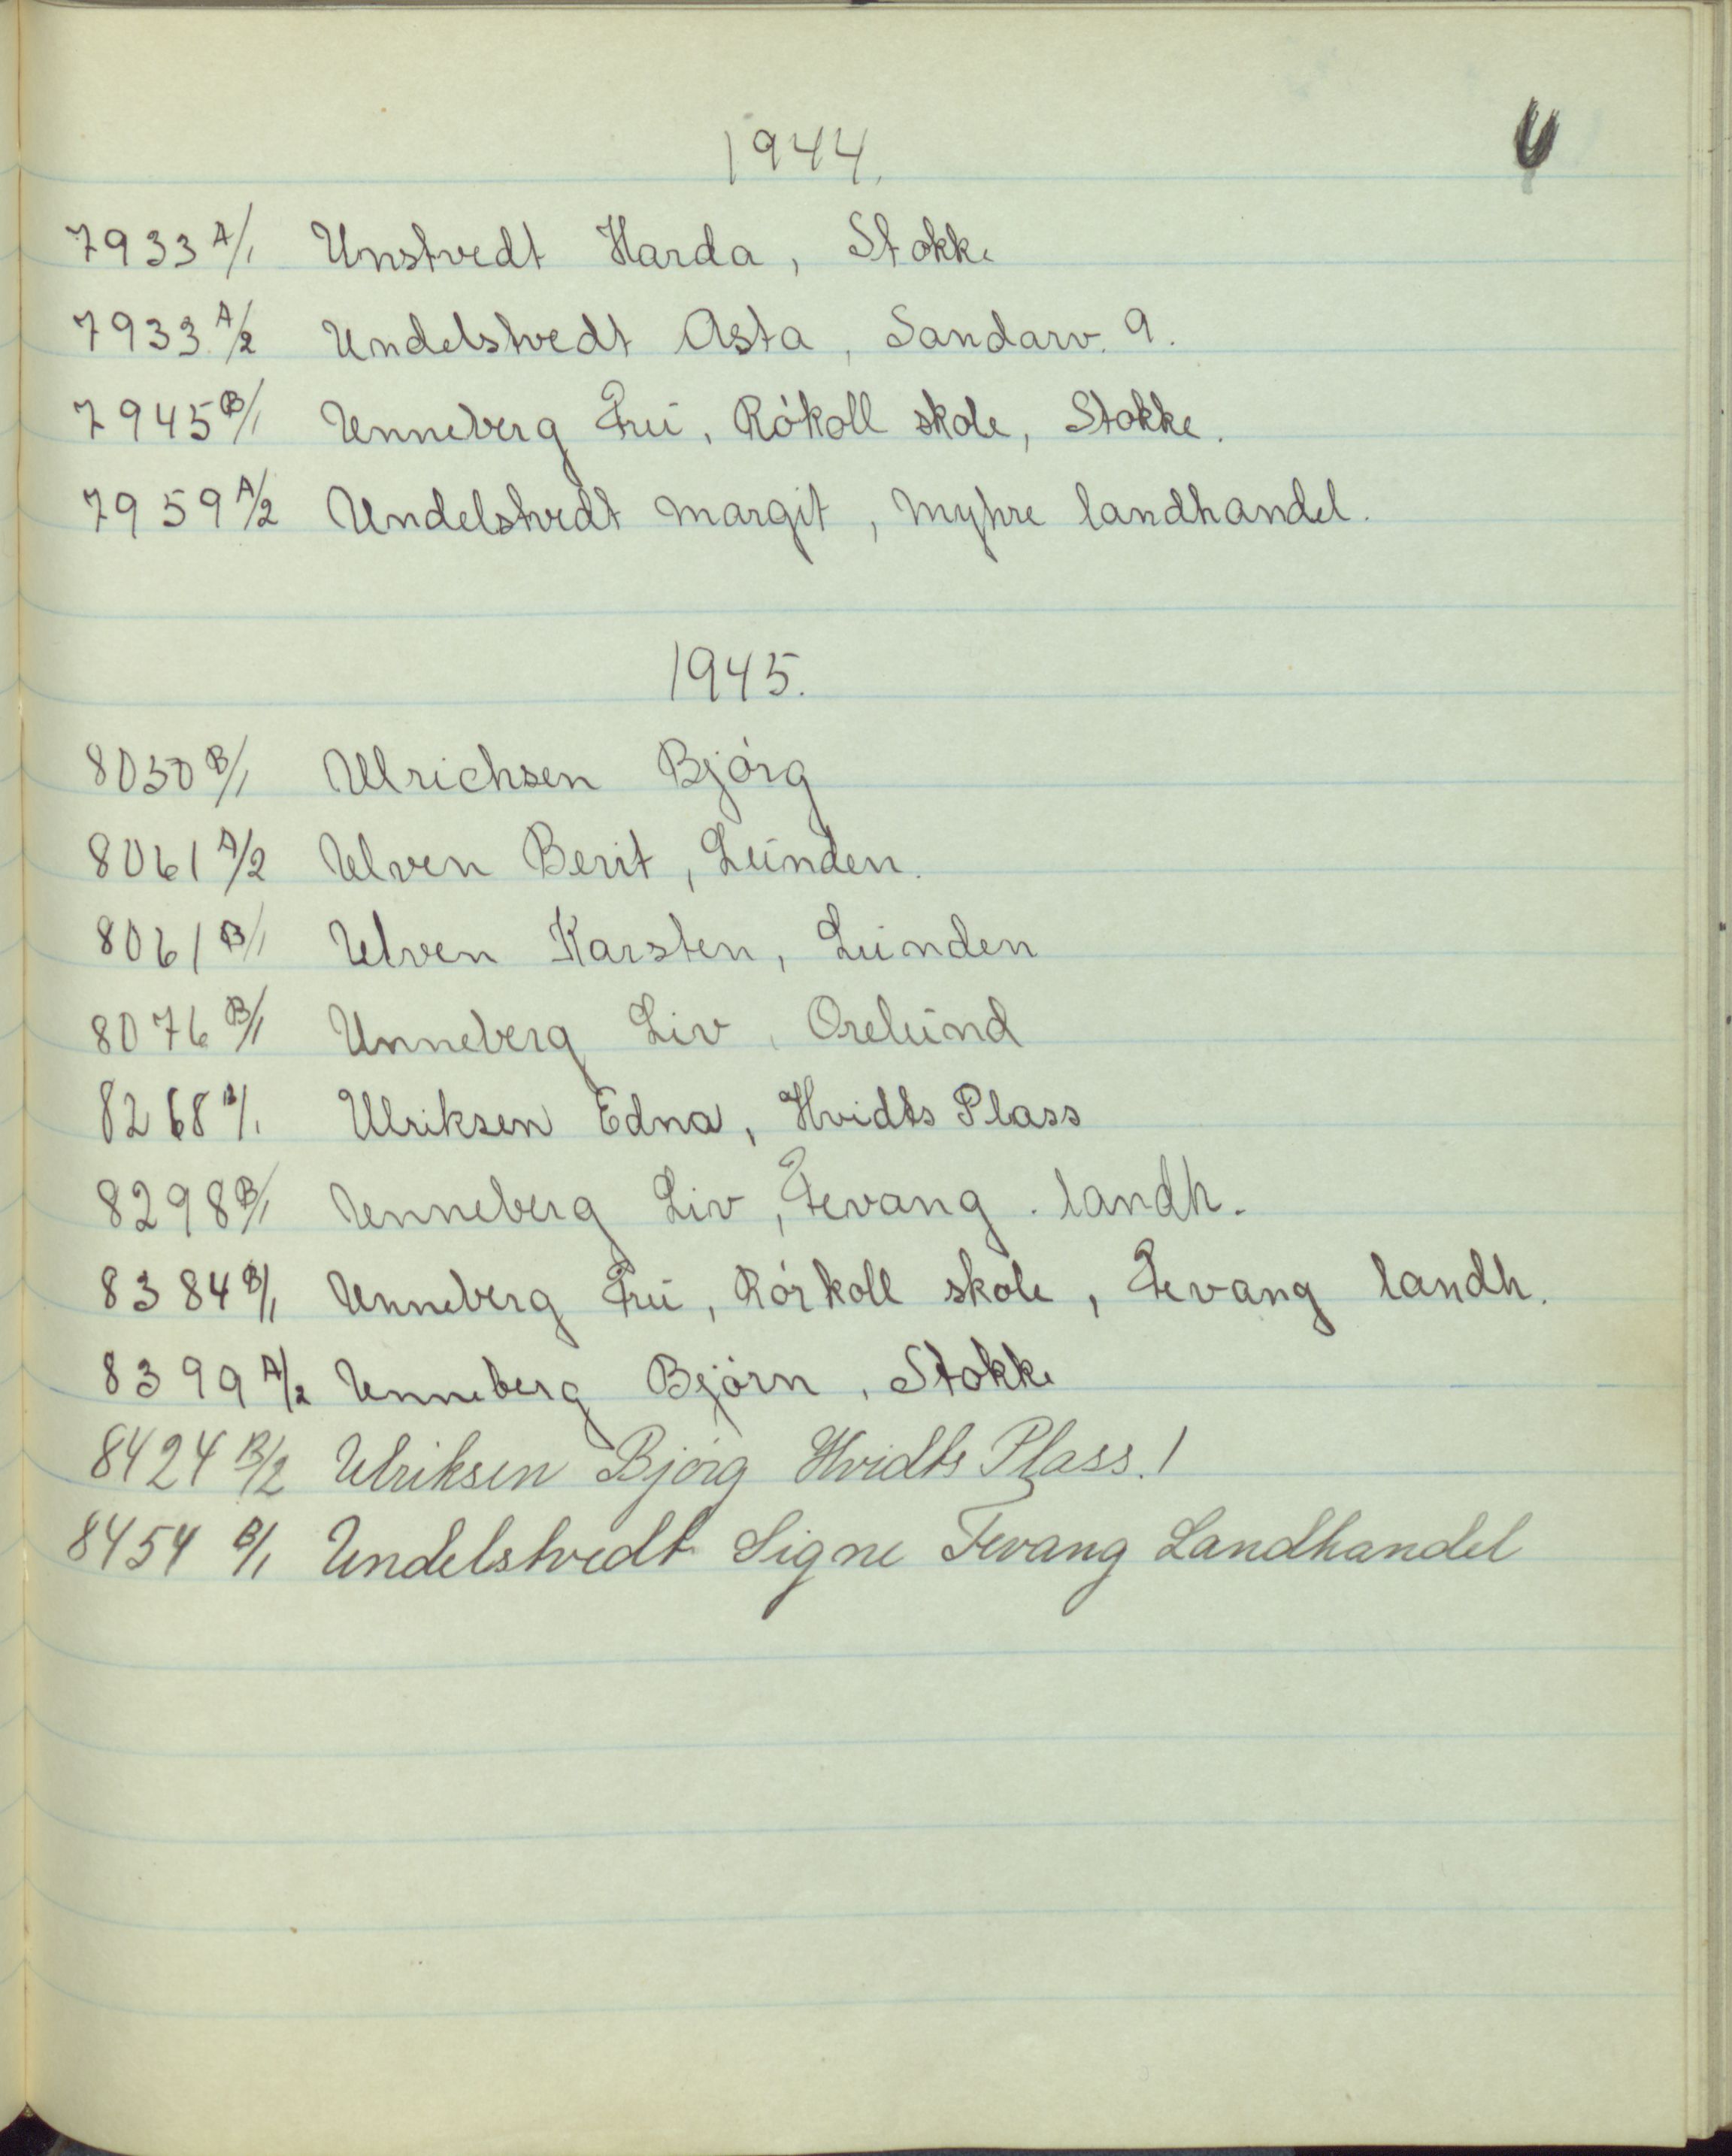 U
1944.
7933 A/1 Unstvedt Harda, Stokke
7933 A/2 Undelstvedt Asta, Sandarv. 9.
7945 B/1 Unneberg Fru, Rókoll skole, Stokke.
7959 A/2 Undelstvedt Margit, Myhre landhandel.
1945.
8050 B/1 Ulrichsen Bjórg
8061 A/2 Ulven Berit, Lunden.
8061 B/1 Ulven Karsten, Lunden
8076 B/1 Unneberg Liv, Orelund
8268 B/1 Ulriksen Edna, Hvidts Plass
8298 B/1 Unneberg Liv, Fevang. landh.
8384 B/1 Unneberg Fru, Rórkoll skole, Fevang landh.
8399 A/2 Unneberg Bjórn, Stokke
8424 B/2 Ulriksen Bjórg Hvidts Plass. 1
8454 B/1 Undelstvedt Signe Fevang Landhandel